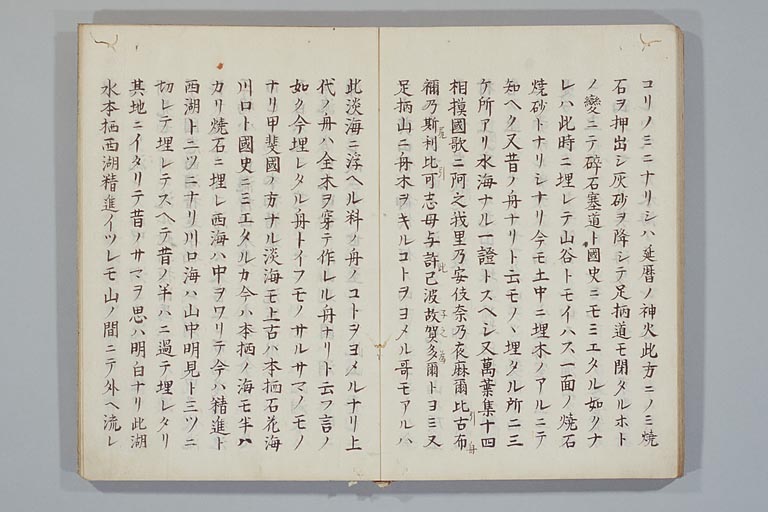 コリノミニナリシハ延暦ノ神火此方ニノミ焼
石ヲ押出シ灰砂ヲ降シテ足柄道モ閉タルホト
ノ變ニテ碎石塞道ト國史ニモミエタル如クナ
レハ此時ニ埋レテ山谷トモイハス一面ノ焼石
焼砂トナリシナリ今モ土中ニ埋木ノアルニテ
知ヘク又昔ノ舟ナリト云モノヽ埋タル所二三
ケ所アリ水海ナル一證トスヘシ又萬葉集十四
相摸國歌ニ阿之我里乃安伎奈乃夜麻爾比古布
引舟
禰乃斯利比可志母与許己波故賀多爾トヨミ又
尾引
此
子之
足柄山ニ舟木ヲキルコトヲヨメル哥モアルハ
此淡海ニ浮ヘル料ノ舟ノコトヲヨメルナリ上
代ノ舟ハ全木ヲ穿テ作レル舟ナリト云フ言ノ
如ク今埋レタル舟トイフモノサルサマノモノ
ナリ甲斐國ノ方ナル淡海モ上古ハ本栖石花海
川口ト國史ニミエタルカ今ハ本栖ノ海モ半ハ
カリ焼石ニ埋レ西海ハ中ヲワリテ今ハ精進ト
西湖トニツニナリ川口海ハ山中明見ト三ツニ
切レテ埋レテスヘテ昔ノ半ハニ過テ埋レタリ
其地ニイタリテ昔ノサマヲ思ハ明白ナリ此湖
水本栖西湖精進イツレモ山ノ間ニテ外ヘ流レ